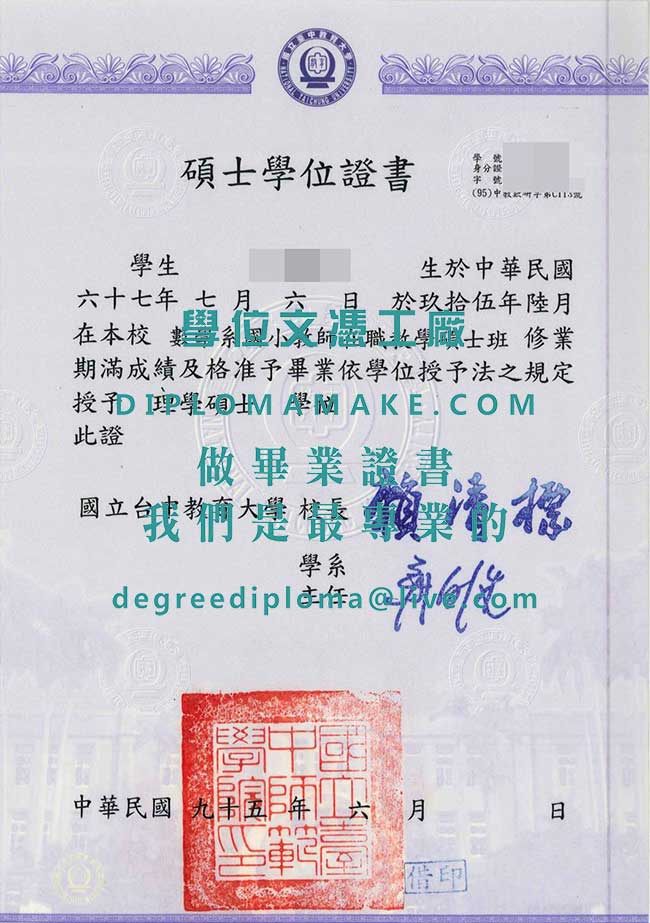 國立臺中教育大學
NATIONAL TAICHUNG UNIVERSITY
碩士學位證書
學號
身分證
字號
(95)中教碩研字第C113號
學生 生於中華民國
六十七年 七月 六日 於玖拾伍年陸月
在本校 數學系國小教師在職教學碩士班 修業
學位文憑工廠
期滿成績及格准予畢業依學位授予法之規定
授予 理學碩士 學位
DIPLOMAMAKE.COM
此證
做畢業證書
國立台中教育大學 校長 賴清標
我們是最專業的
學系
主任
degreediploma@live.com
國立臺中師範學院印
中華民國 九十五 年 六 月 日
借印